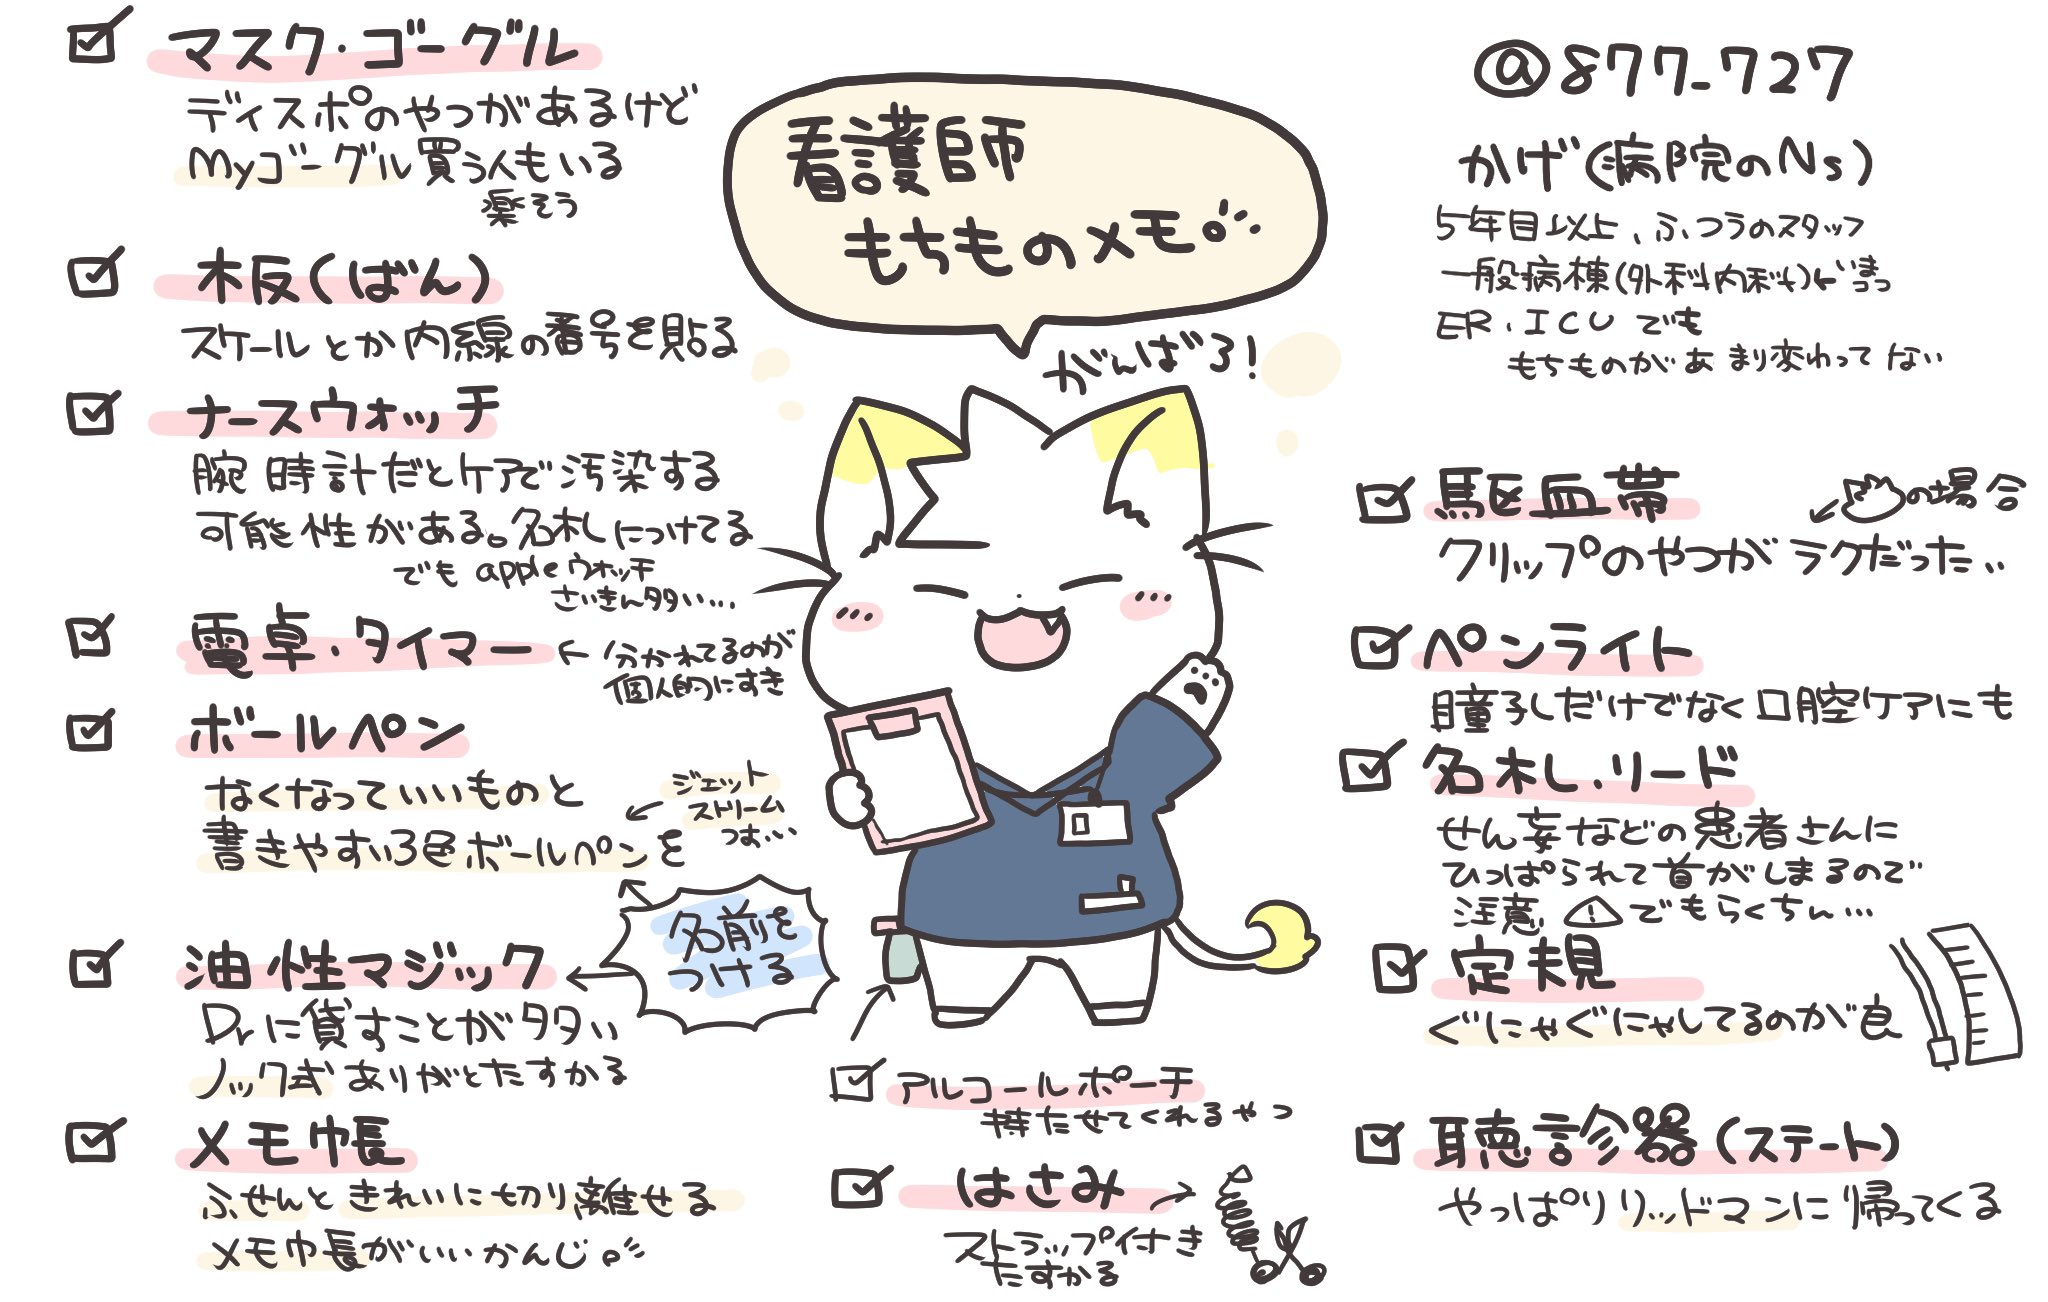 看護師
もちものメモ
がんばろ!
@877_727
かげ(病院のNs)
5年目以上、ふつうのスタッフ
一般病棟(外科内科)にいまっ
ER・ICUでも
もちものがあまり変わってない
マスク・ゴーグル
ディスポのやつがあるけど
Myゴーグル買う人もいる
楽そう
木板(ばん)
スケールとか内線の番号を貼る
ナースウォッチ
腕時計だとケアで汚染する
可能性がある。名札につけてる
でもappleウォッチ
さいきん多い…
電卓・タイマー
←分かれてるのが
個人的にすき
ボールペン
なくなっていいものと
書きやすい3色ボールペンを
ジェット
ストリーム
つよ…
名前を
つける
油性マジック
Drに貸すことが多い
ノック式ありがとたすかる
メモ帳
ふせんときれいに切り離せる
メモ帳がいいかんじ。
アルコールポーチ
持たせてくれるやつ
はさみ
ストラップ付き
たすかる
駆血帯
の場合
クリップのやつがラクだった..
ペンライト
瞳孔だけでなく口腔ケアにも
名札・リード
せん妄などの患者さんに
ひっぱられて首がしまるので
注意⚠でもらくちん…
定規
ぐにゃぐにゃしてるのが良
聴診器(ステート)
やっぱりリットマンに帰ってくる